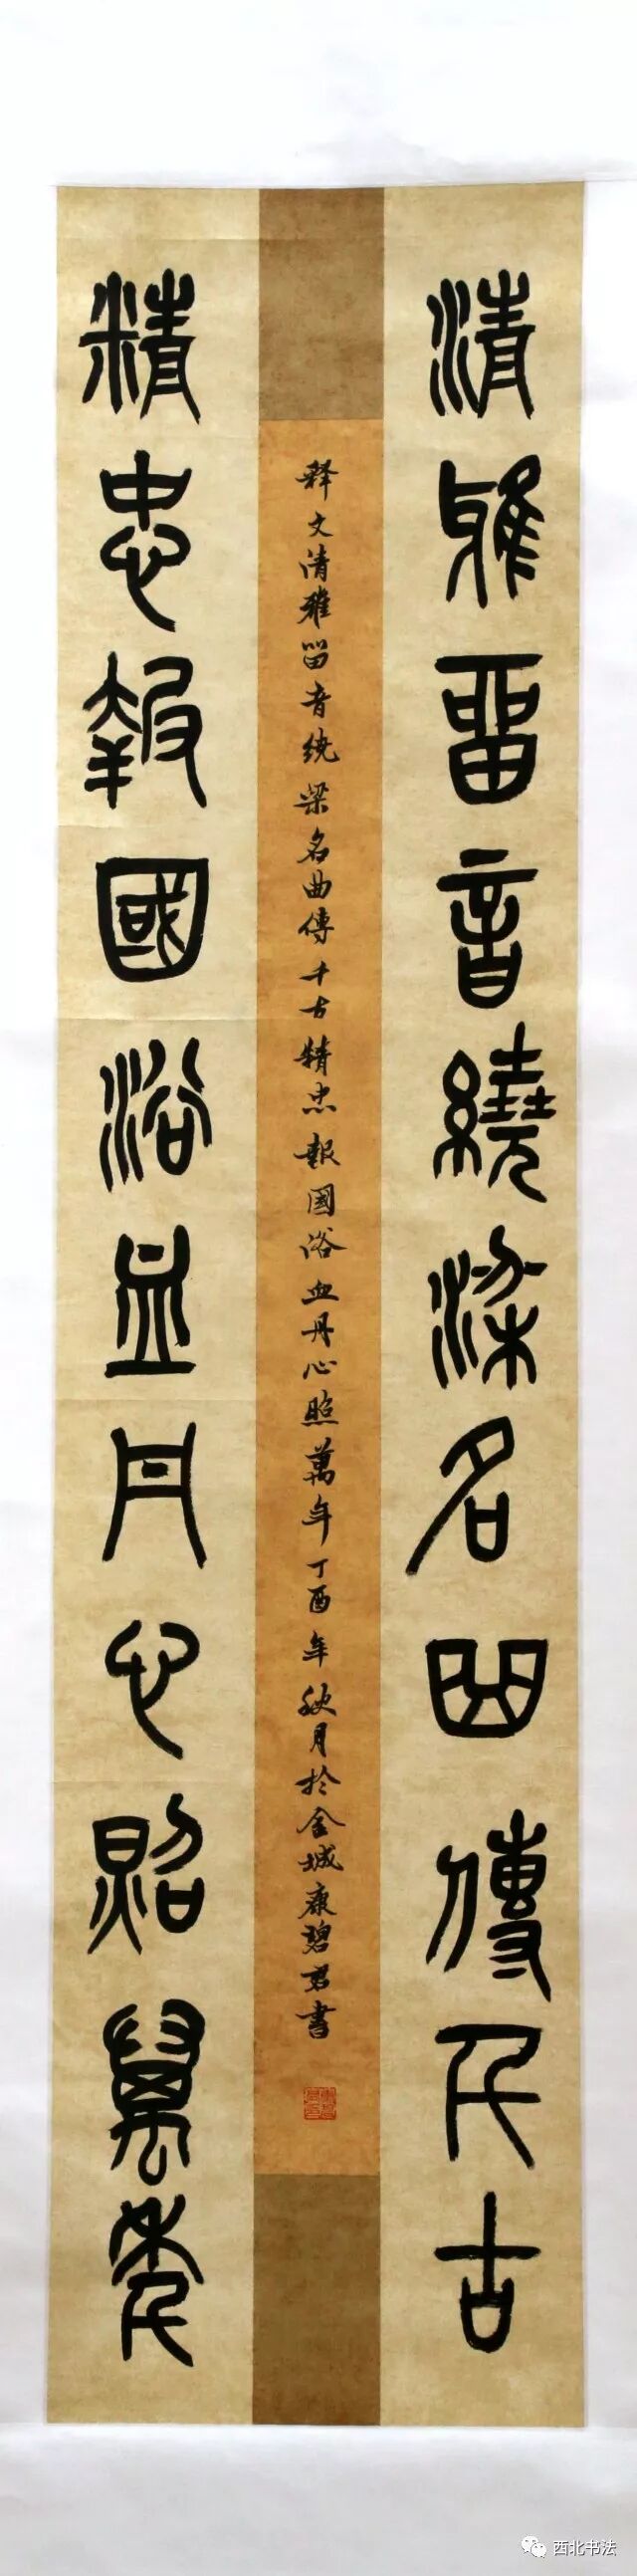 清雅留音繞梁名曲傳千古
釋文清雅留音繞梁名曲傳千古精忠報國浴血丹心照萬年丁酉年秋月於金城康碧君書
精忠報國浴血丹心照萬年
西北书法